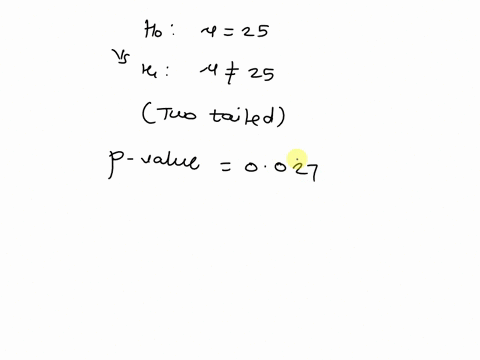 H₀: μ = 25
Vs
H₁: μ ≠ 25
(Two tailed)
p-value = 0.027